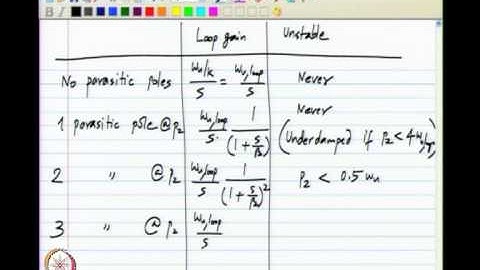 Loop gain Unstable
No parasitic poles ωu/k / s = ωu,loop / s Never
1 parasitic pole @ p2 ωu,loop / s · 1 / (1 + s/p2) Never
(Underdamped if p2 < 4ωu,loop)
2 " @ p2 ωu,loop / s · 1 / (1 + s/p2)^2 p2 < 0.5 ωu
3 " @ p2 ωu,loop / s